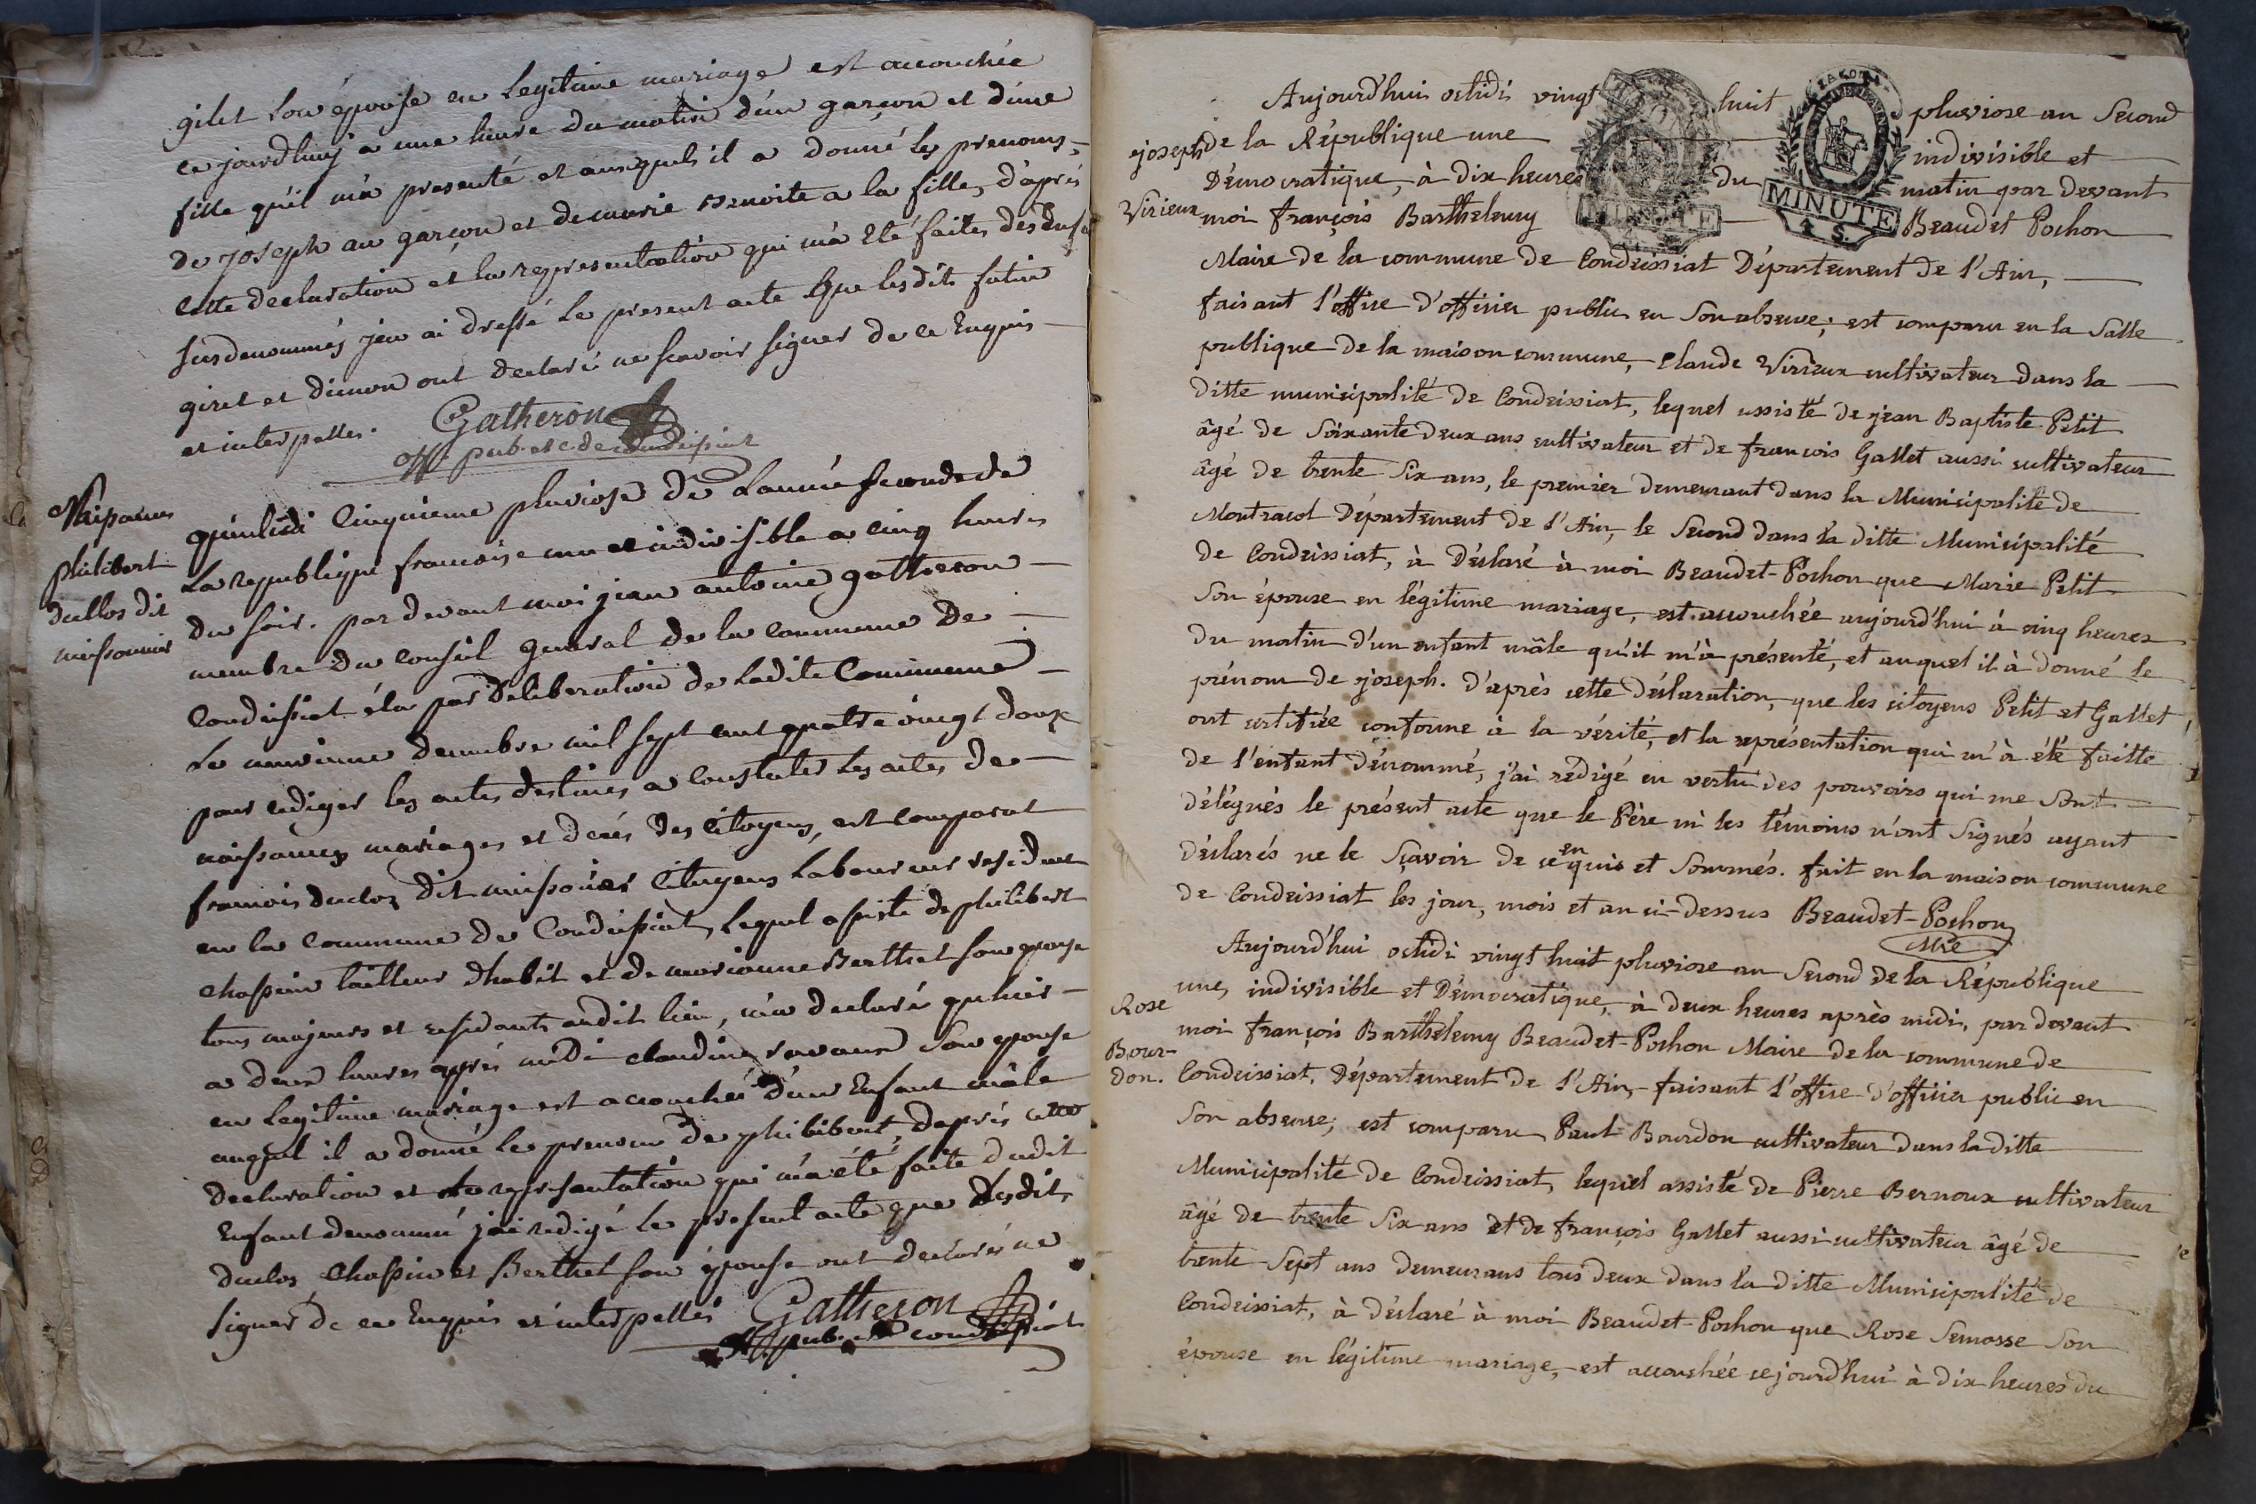 gilet son épouse en legitime mariage est accouchée
ce jourdhuy à une heure du matin d'un garçon et d'une
fille qu'il m'a presenté et auxquels il a donné les prenoms
de joseph au garçon et de marie Benoite a la fille, d'après
cette declaration et la representation qui m'a été faites des
susdenommés j'en ai dressé le present acte que lesdits
giret et ont declaré ne scavoir signer de ce Enquis
et interpellés. Gatheron
off. pub. et c. de condeissiat
Naissance
philibert
duclos dit
quintidi Cinquieme pluviose de L'année seconde de
La republique francoise une et indivisible a cinq heures
du soir. par devant moi jean antoine gatheron
membre du conseil general de la commune de
Condeissiat élu par Deliberation de Ladite Commune
Le decembre mil sept cent quatre vingt douze
pour rediger les actes destinés a constater Les actes de
naissances mariages et decés des Citoyens, est comparut
francois duclos dit Citoyens Laboureur residant
en la Commune de Condeissiat, Lequel assisté de philibert
chassin tailleur d'habit et de marianne Berthet son epouse
tous majeurs et residants audit lieu, m'a declaré qu'hier
a deux heures après midi claudine son epouse
en Legitime mariage est accouchée d'un Enfant mâle
auquel il a donné le prenom de philibert, d'après cette
declaration et la representation qui m'a été faite dudit
Enfant denommé j'ai redigé le present acte que lesdits
duclos chassin et Berthet son épouse ont declarés ne
signer de ce Enquis et interpellés Gatheron
off. pub. condeissiat
Aujourd'hui octidi vingt huit pluviose an Second
joseph
de la République une indivisible et
Démocratique, à dix heures du matin par devant
MINUTE
MINUTE
4 S.
Virieux
moi françois Barthelemy Beaudet Pochon
Maire de la commune de Condeissiat Département de l'Ain,
faisant l'office d'officier public en Son absence; est comparu en la Salle
publique de la maison commune, Claude Virieux cultivateur dans la
ditte municipalité de Condeissiat, lequel assisté de jean Baptiste Petit
âgé de Soixante deux ans cultivateur et de françois Gallet aussi cultivateur
âgé de trente Six ans, le premier demeurant dans la Municipalité de
Montracol Département de l'Ain, le Second dans la ditte Municipalité
de Condeissiat, à Déclaré à moi Beaudet-Pochon que Marie Petit
Son épouse en légitime mariage, est accouchée aujourd'hui à cinq heures
du matin d'un enfant mâle qu'il m'à présenté, et auquel il à donné le
prénom de joseph. D'après cette Déclaration, que les citoyens Petit et Gallet
ont certifiée conforme à la vérité, et la représentation qui m'à été faitte
de l'enfant Dénommé, j'ai rédigé en vertu des pouvoirs qui me Sont
Délégués le présent acte que le Père ni les témoins n'ont Signés ayant
Déclarés ne le Sçavoir de ce enquis et Sommés. fait en la maison commune
de Condeissiat les jour, mois et an ci-dessus Beaudet-Pochon
Mre
Aujourd'hui octidi vingt huit pluviose an Second de la République
une, indivisible et Démocratique, à deux heures après midi, par devant
Rose
moi françois Barthelemy Beaudet-Pochon Maire de la commune de
Bour-
don.
Condeissiat, Département de l'Ain, faisant l'office d'officier public en
Son absence; est comparu Paul Bourdon cultivateur dans la ditte
Municipalité de Condeissiat, lequel assisté de Pierre Bernoux cultivateur
âgé de trente Six ans et de françois Gallet aussi cultivateur âgé de
trente-Sept ans demeurans tous deux dans la ditte Municipalité de
Condeissiat, à déclaré à moi Beaudet-Pochon que Rose Semosse Son
épouse en légitime mariage, est accouchée ce jourd'hui à dix heures du